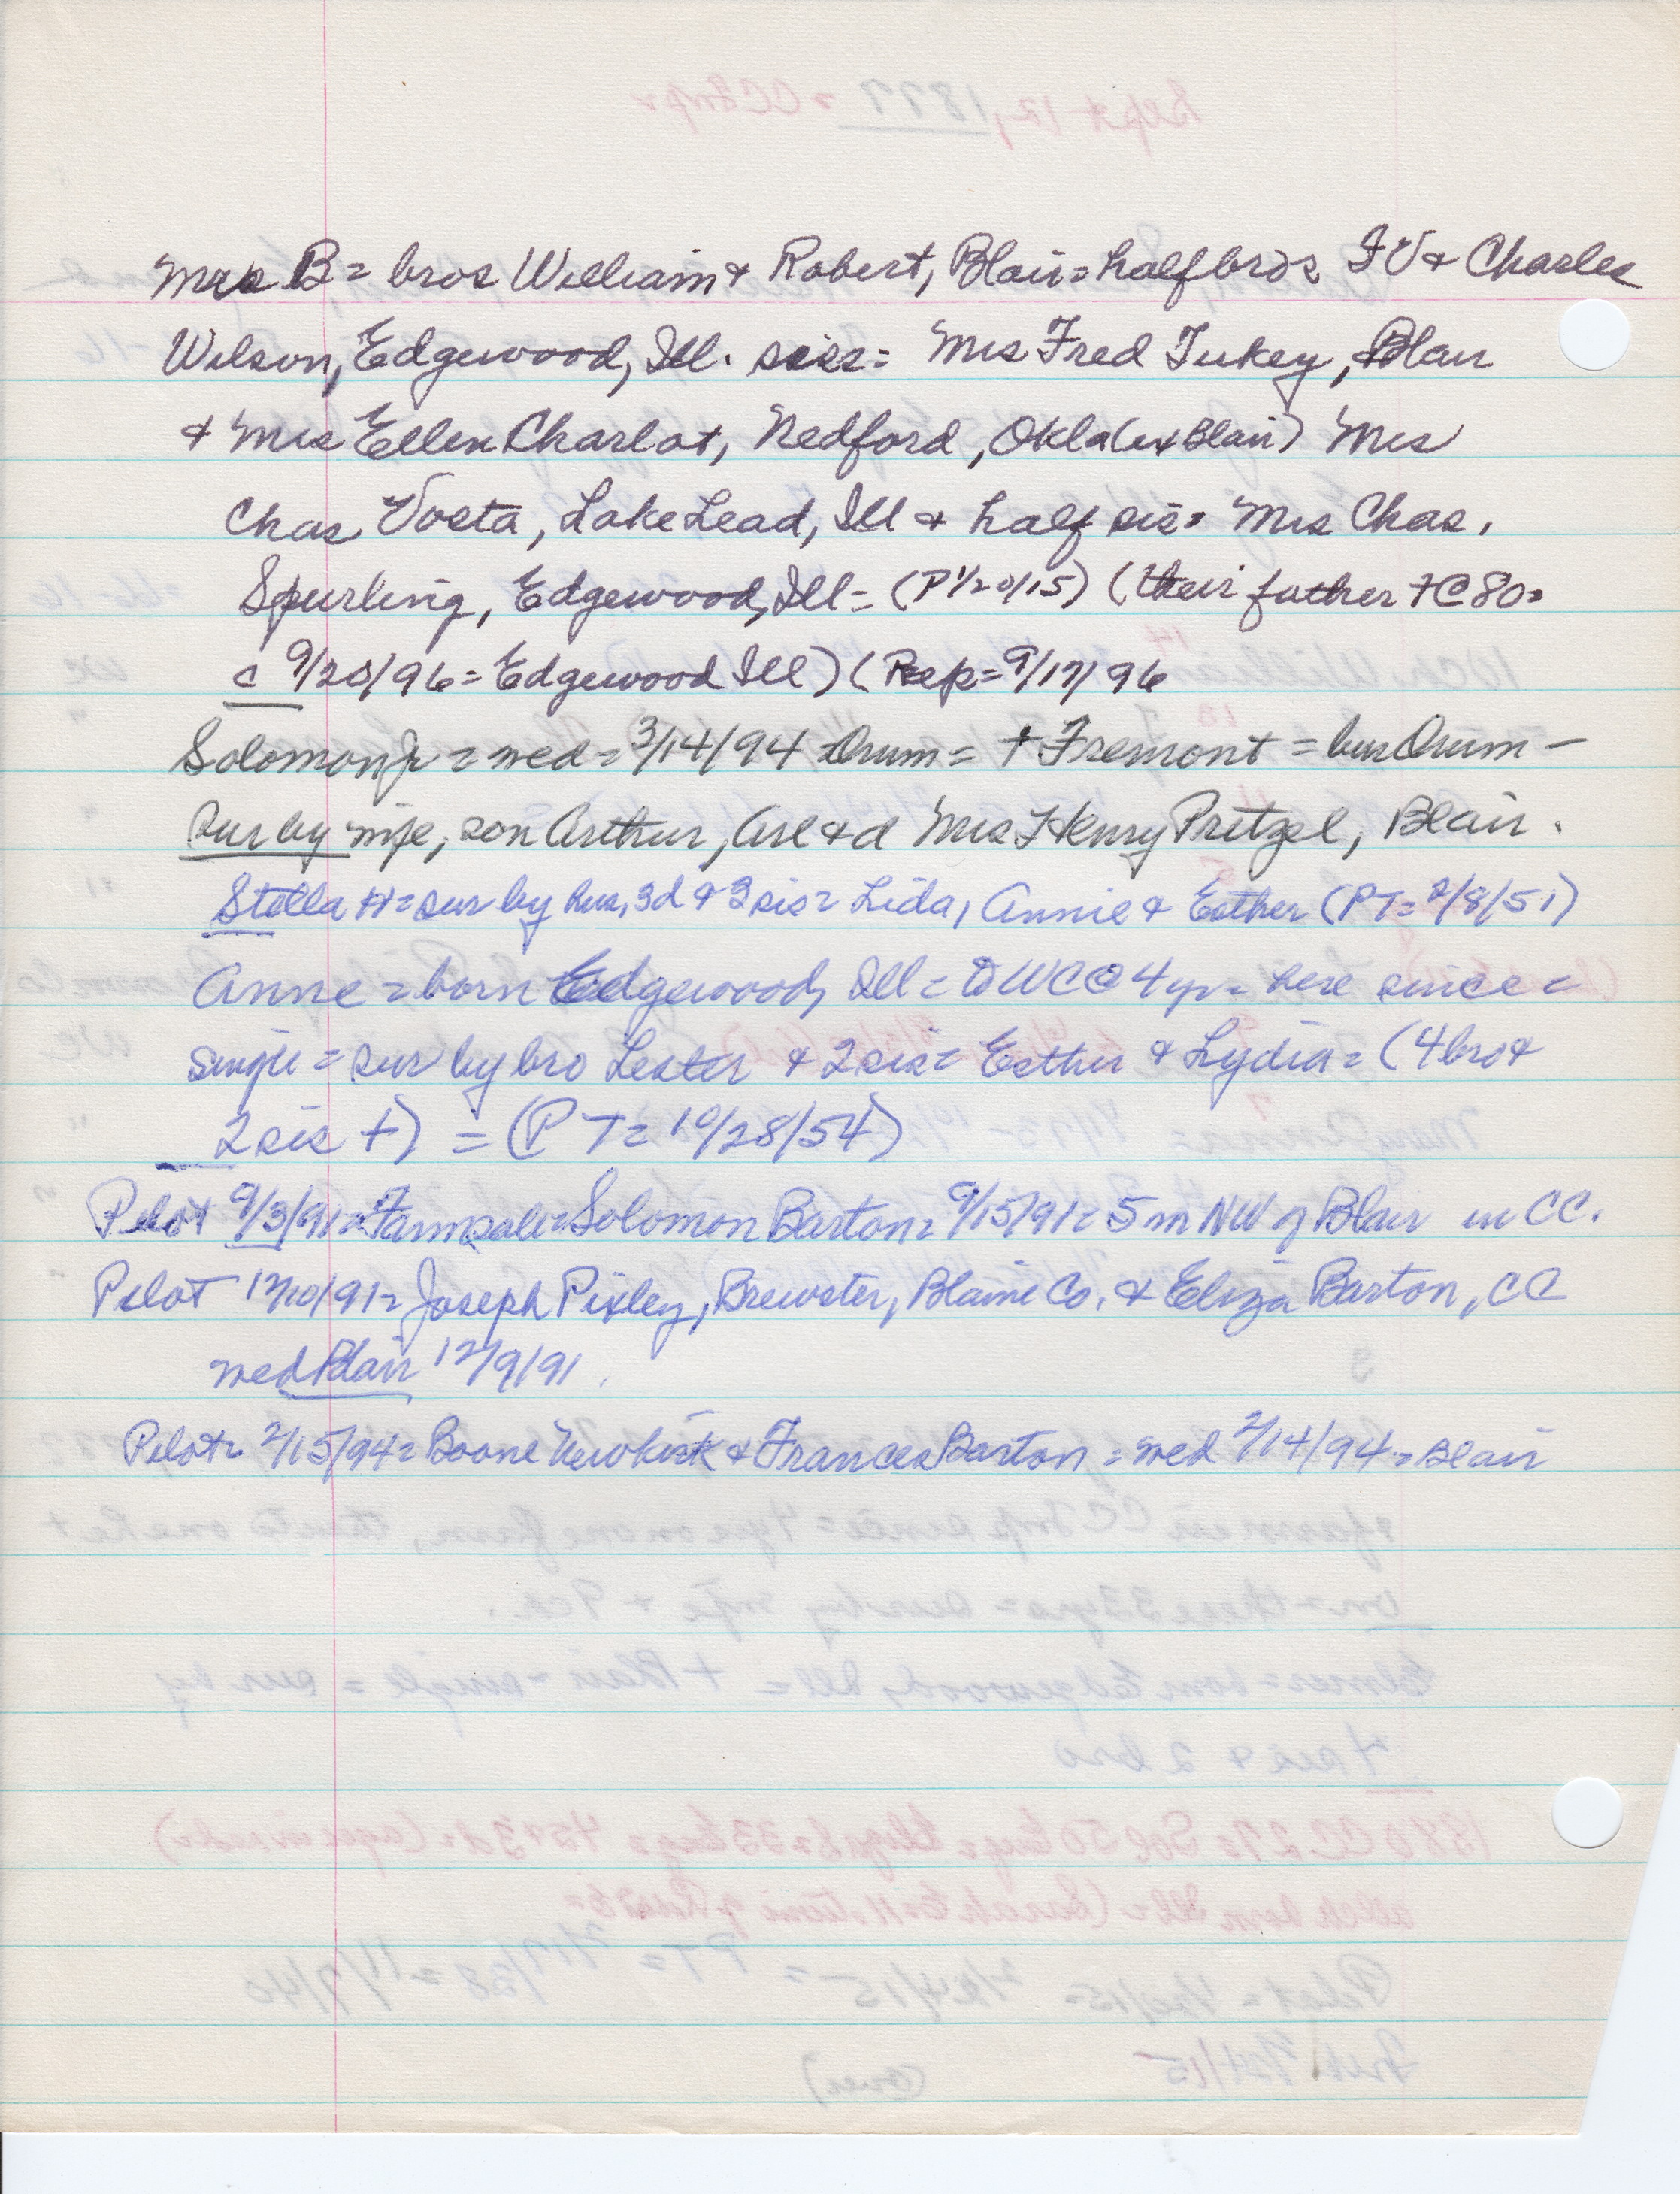 Mrs B = bros William & Robert, Blair = half bros I V & Charles
Wilson, Edgewood, Ill. siss = Mrs Fred Tukey, Blair
& Mrs Ellen Charlot, Nedford, Okla (ex Blair) Mrs
Chas Vosta, Lake Lead, Ill & half sis = Mrs Chas.
Spurling, Edgewood, Ill = (P 1/20/15) (their father + @ 80 =
c 9/20/96 = Edgewood Ill) (Rep = 9/17/96
Solomon Jr = wed = 3/14/94 Orum = + Fremont = bur Orum –
sur by wife, son Arthur, Arl & d Mrs Henry Pretzel, Blair.
Stella H = sur by hus, 3d & 3 sis = Lida, Annie & Esther (PT = 2/8/51)
Anne = born Edgewood, Ill = to WC @ 4 yr = here since =
single = sur by bro Lester & 2 sis = Esther & Lydia = (4 bro &
2 sis +) = (PT = 10/28/54)
Pilot 9/3/91 = Farm sale = Solomon Barton = 9/15/91 = 5 m NW of Blair in CC.
Pilot 12/10/91 = Joseph Pixley, Brewster, Blaine Co. & Eliza Barton, CC
wed Blair 12/9/91.
Pilot = 2/15/94 = Boone Newkirk & Frances Barton = wed 2/14/94 = Blair